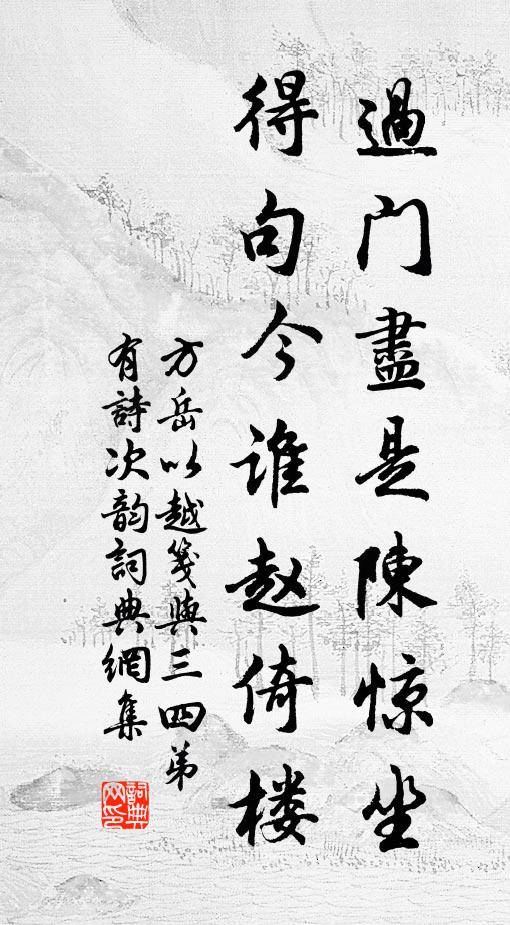 過门盡是陳惊坐
得句今谁赵倚楼
方岳以越箋與三四弟
有詩次韵詞典網集
詞典网印